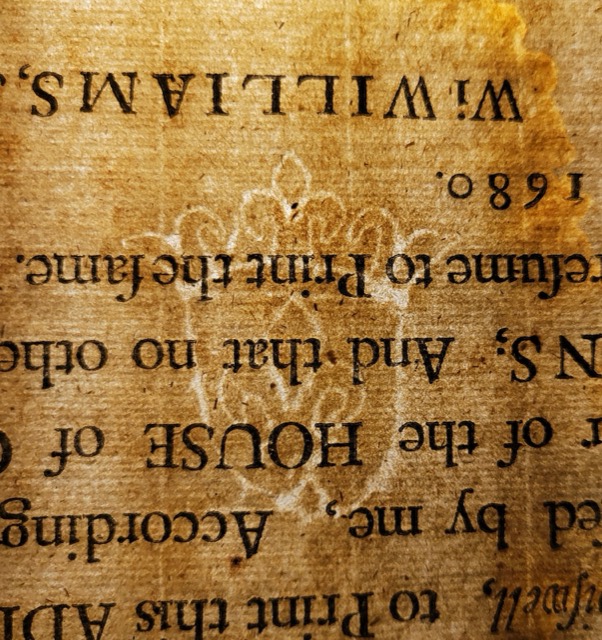 iſwell, to Print this ADD
ed by me, According
r of the HOUSE of
NS; And that no othe
reſume to Print the ſame.
1680.
Wi WILLIAMS,